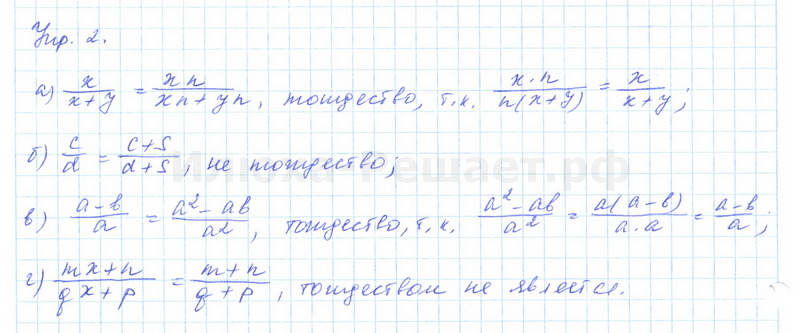 Упр. 2.
а) x/(x+y) = xn/(xn+yn), тождество, т.к. x·n/(n(x+y)) = x/(x+y);
б) c/d = (c+s)/(d+s), не тождество;
в) (a-b)/a = (a²-ab)/a², тождество, т.к. (a²-ab)/a² = a(a-b)/(a·a) = (a-b)/a;
г) (mx+n)/(qx+p) = (m+n)/(q+p), тождеством не является.
Илюха-Решает.рф